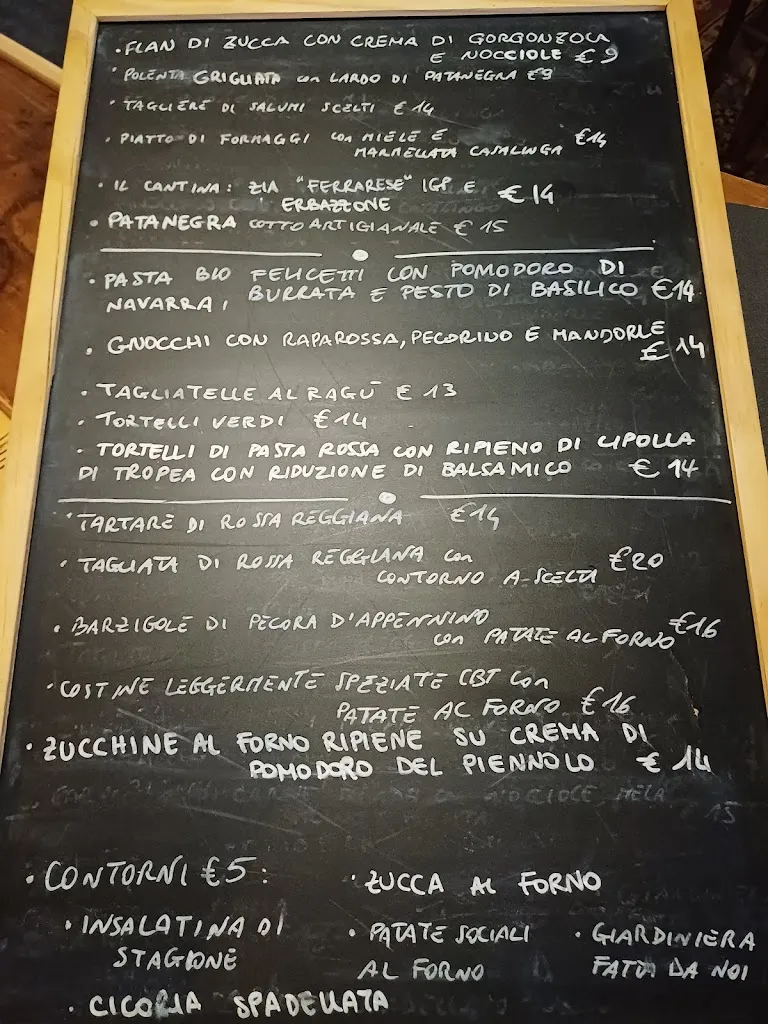 • FLAN DI ZUCCA CON CREMA DI GORGONZOLA
E NOCCIOLE € 9
• POLENTA GRIGLIATA con LARDO DI PATANEGRA €9
• TAGLIERE DI SALUMI SCELTI € 14
• PIATTO DI FORMAGGI con MIELE E €14
MARMELLATA CASALINGA
• IL CANTINA: ZIA "FERRARESE" IGP E € 14
ERBAZZONE
• PATANEGRA COTTO ARTIGIANALE € 15
• PASTA BIO FELICETTI CON POMODORO DI
NAVARRA, BURRATA E PESTO DI BASILICO €14
• GNOCCHI CON RAPAROSSA, PECORINO E MANDORLE
€ 14
• TAGLIATELLE AL RAGÙ € 13
• TORTELLI VERDI €14
• TORTELLI DI PASTA ROSSA CON RIPIENO DI CIPOLLA
DI TROPEA CON RIDUZIONE DI BALSAMICO € 14
• TARTARE DI ROSSA REGGIANA €14
• TAGLIATA DI ROSSA REGGIANA con €20
CONTORNO A SCELTA
• BARZIGOLE DI PECORA D'APPENNINO €16
con PATATE AL FORNO
• COSTINE LEGGERMENTE SPEZIATE CBT con
PATATE AL FORNO €16
• ZUCCHINE AL FORNO RIPIENE SU CREMA DI
POMODORO DEL PIENNOLO € 14
• CONTORNI €5:
• ZUCCA AL FORNO
• INSALATINA DI
STAGIONE
• PATATE SOCIALI
AL FORNO
• GIARDINIERA
FATTA DA NOI
• CICORIA SPADELLATA